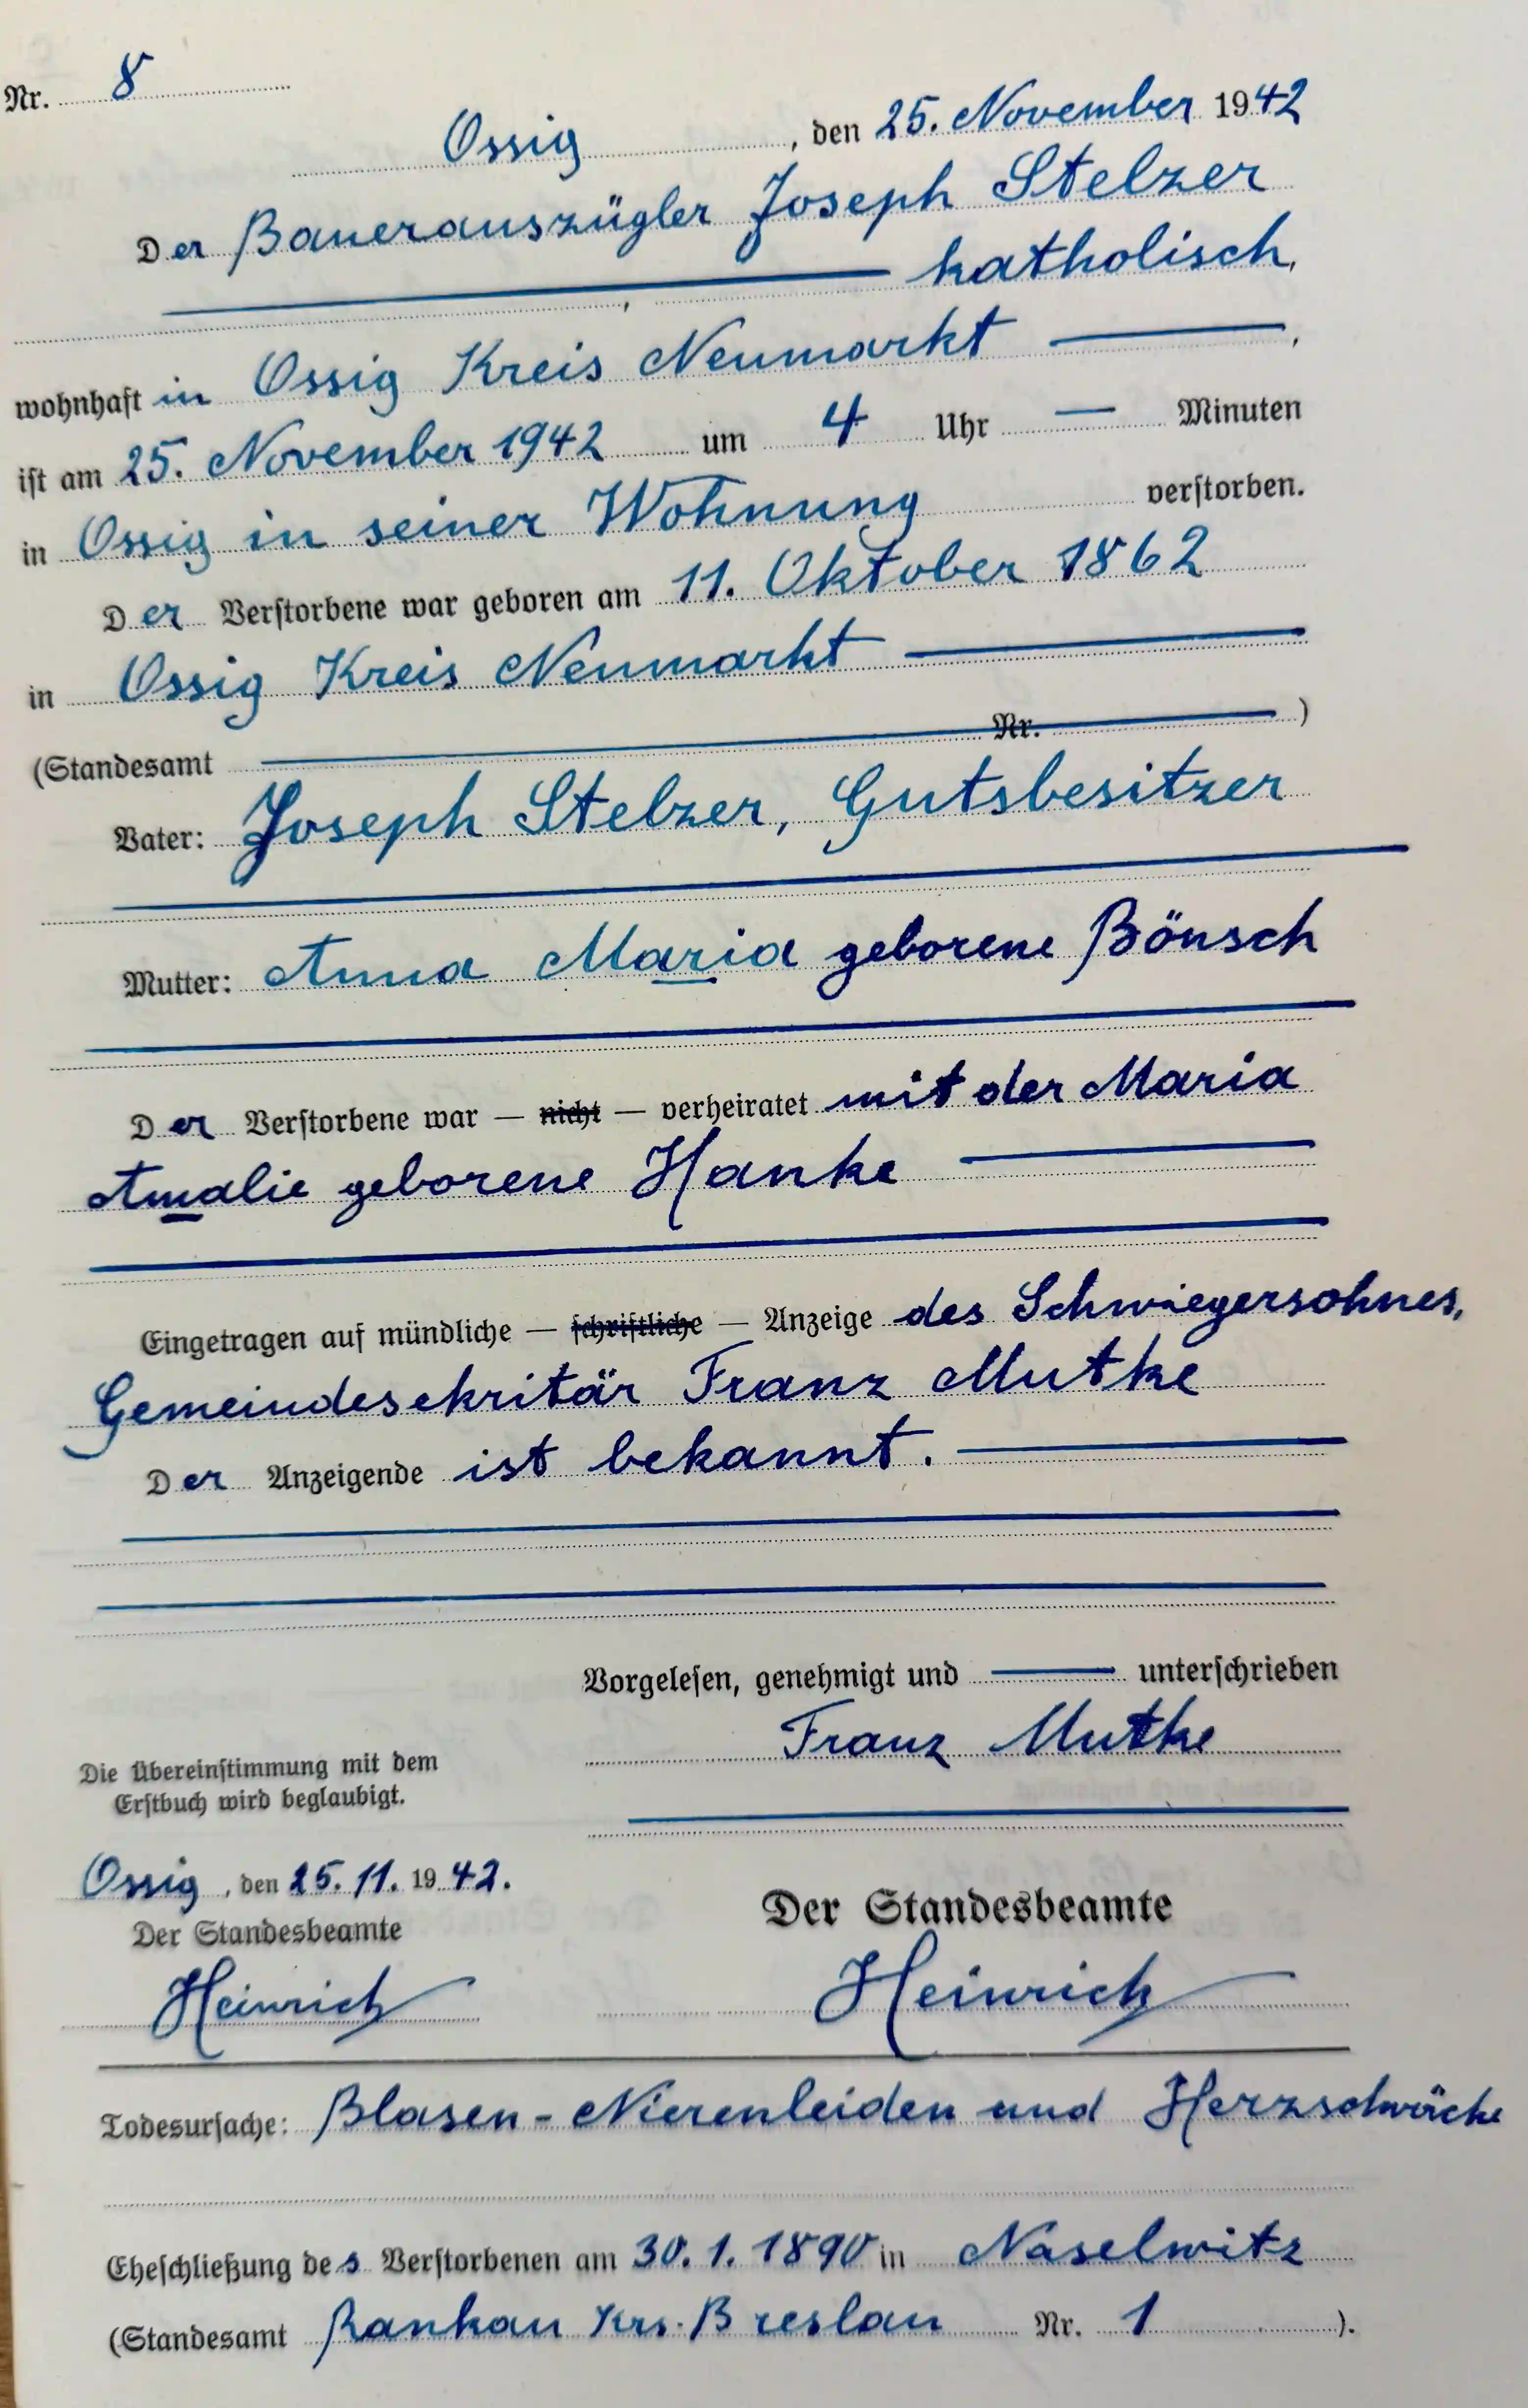 Nr. 8
Ossig, den 25. November 1942
Der Bauerauszügler Joseph Stelzer
katholisch,
wohnhaft in Ossig Kreis Neumarkt,
ist am 25. November 1942 um 4 Uhr — Minuten
in Ossig in seiner Wohnung verstorben.
Der Verstorbene war geboren am 11. Oktober 1862
in Ossig Kreis Neumarkt
(Standesamt Nr. )
Vater: Joseph Stelzer, Gutsbesitzer
Mutter: Anna Maria geborene Bönsch
Der Verstorbene war — nicht — verheiratet mit der Maria
Amalie geborene Hanke
Eingetragen auf mündliche — schriftliche — Anzeige des Schwiegersohnes,
Gemeindesekritär Franz Mutke
Der Anzeigende ist bekannt.
Vorgelesen, genehmigt und — unterschrieben
Franz Mutke
Die Übereinstimmung mit dem
Erstbuch wird beglaubigt.
Ossig, den 25.11.1942.
Der Standesbeamte
Heinrich
Der Standesbeamte
Heinrich
Todesursache: Blasen-Nierenleiden und Herzschwäche
Eheschließung des Verstorbenen am 30.1.1890 in Naselwitz
(Standesamt Rankau Krs. Breslau Nr. 1 ).